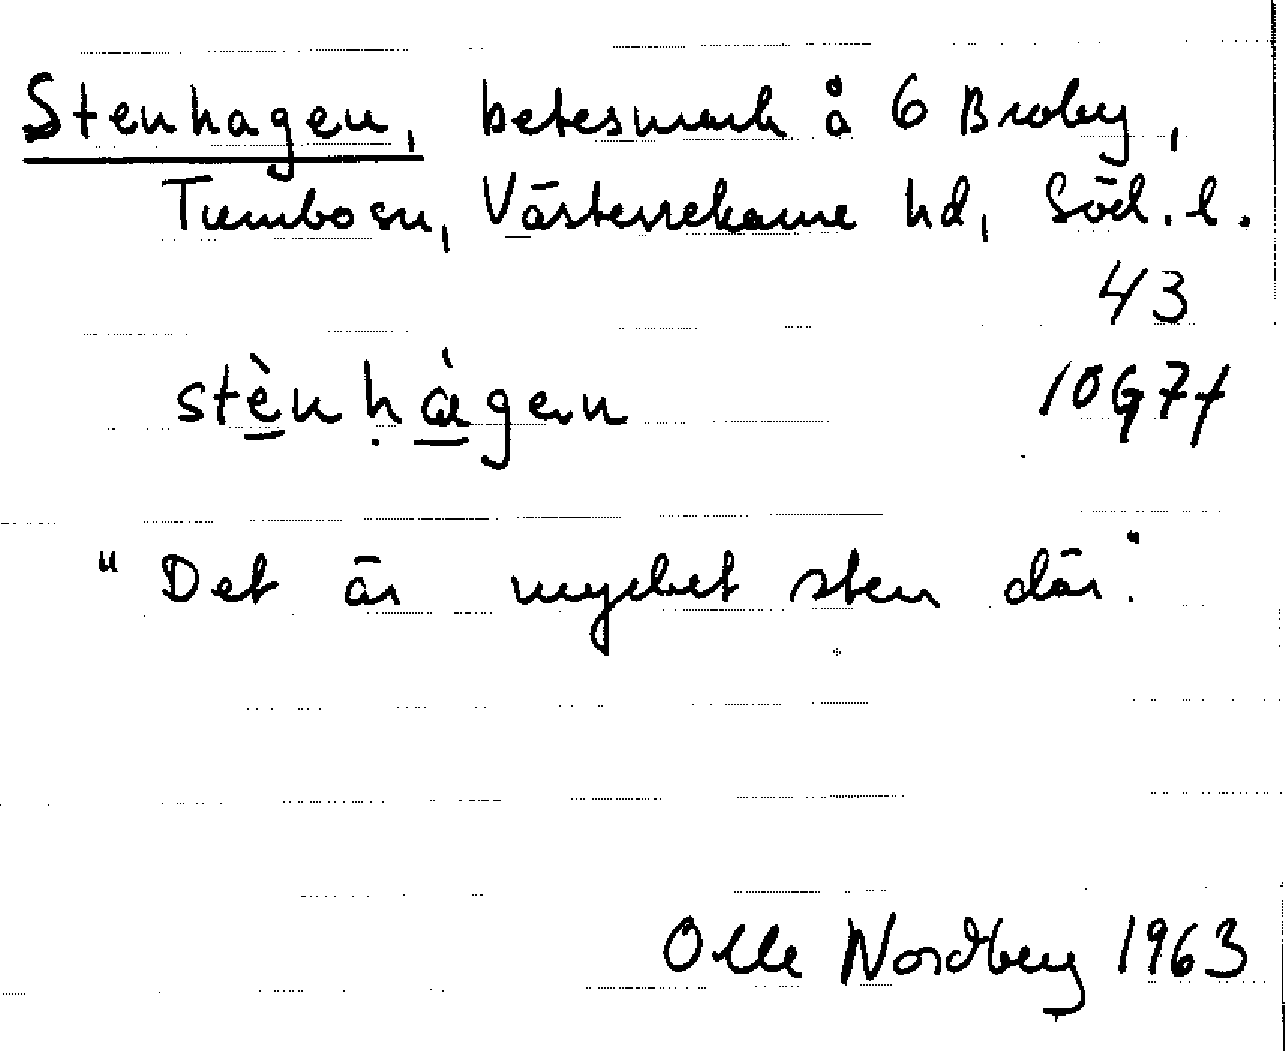 Stenhagen, betesmark å 6 Broby,
Tumbo sn, Västerrekarne hd, Söd. l.
43
stènhàgen 10G7f
"Det är mycket sten där."
Olle Nordberg 1963